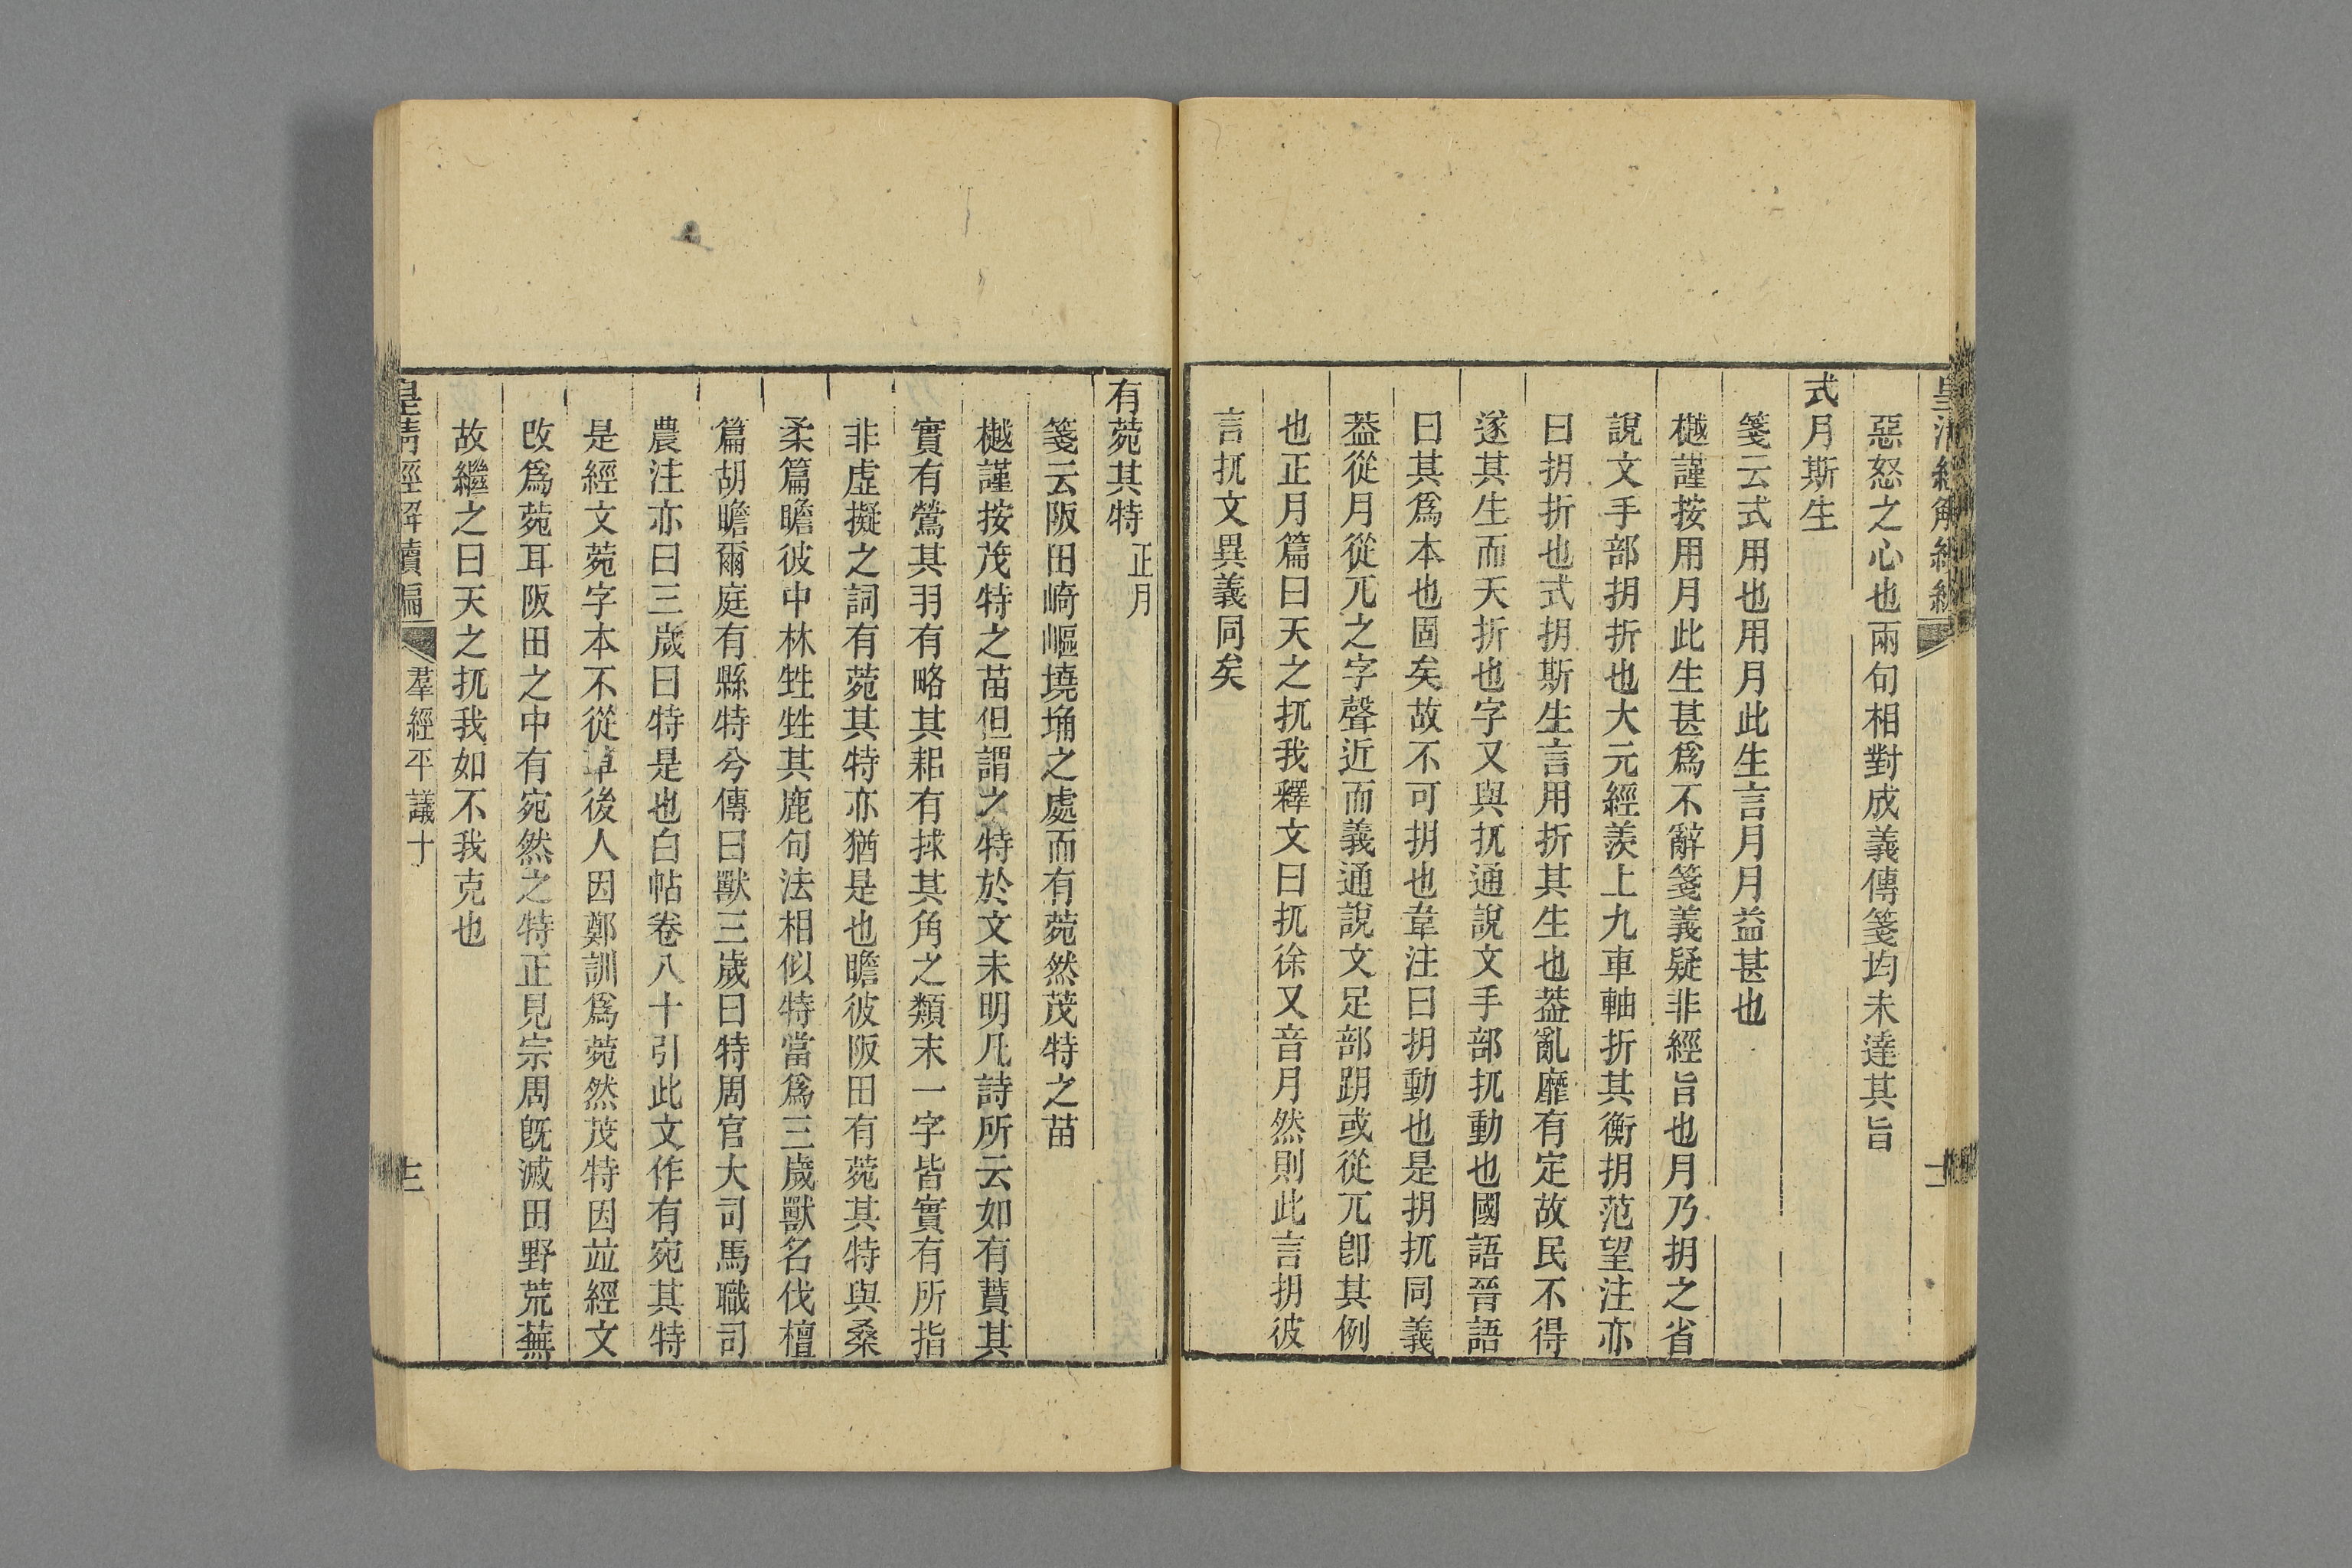 皇清經解續編
惡怒之心也兩句相對成義傳箋均未達其旨
式月斯生
箋云式用也用月此生言月月益甚也
樾謹按用月此生甚爲不辭箋義疑非經旨也月乃抈之省
說文手部抈折也大元經羨上九車軸折其衡抈范望注亦
曰抈折也式抈斯生言用折其生也葢亂靡有定故民不得
遂其生而夭折也字又與抓通說文手部扤動也國語晉語
曰其爲本也固矣故不可抈也韋注曰抈動也是抈扤同義
葢從月從兀之字聲近而義通說文足部跀或從兀卽其例
也正月篇曰天之扤我釋文曰扤徐又音月然則此言抈彼
言扤文異義同矣
有菀其特 正月
箋云阪田崎嶇墝埆之處而有菀然茂特之苗
樾謹按茂特之苗但謂之特於文未明凡詩所云如有蕡其
實有鶯其羽有略其耜有捄其角之類末一字皆實有所指
非虛擬之詞有菀其特亦猶是也瞻彼阪田有菀其特與桑
柔篇瞻彼中林甡甡其鹿句法相似特當爲三歲獸名伐檀
篇胡瞻爾庭有縣特兮傳曰獸三歲曰特周官大司馬職司
農注亦曰三歲曰特是也白帖卷八十引此文作有宛其特
是經文菀字本不從草後人因鄭訓爲菀然茂特因竝經文
改爲菀耳阪田之中有宛然之特正見宗周旣滅田野荒蕪
故繼之曰天之扤我如不我克也
皇清經解續編 羣經平議十